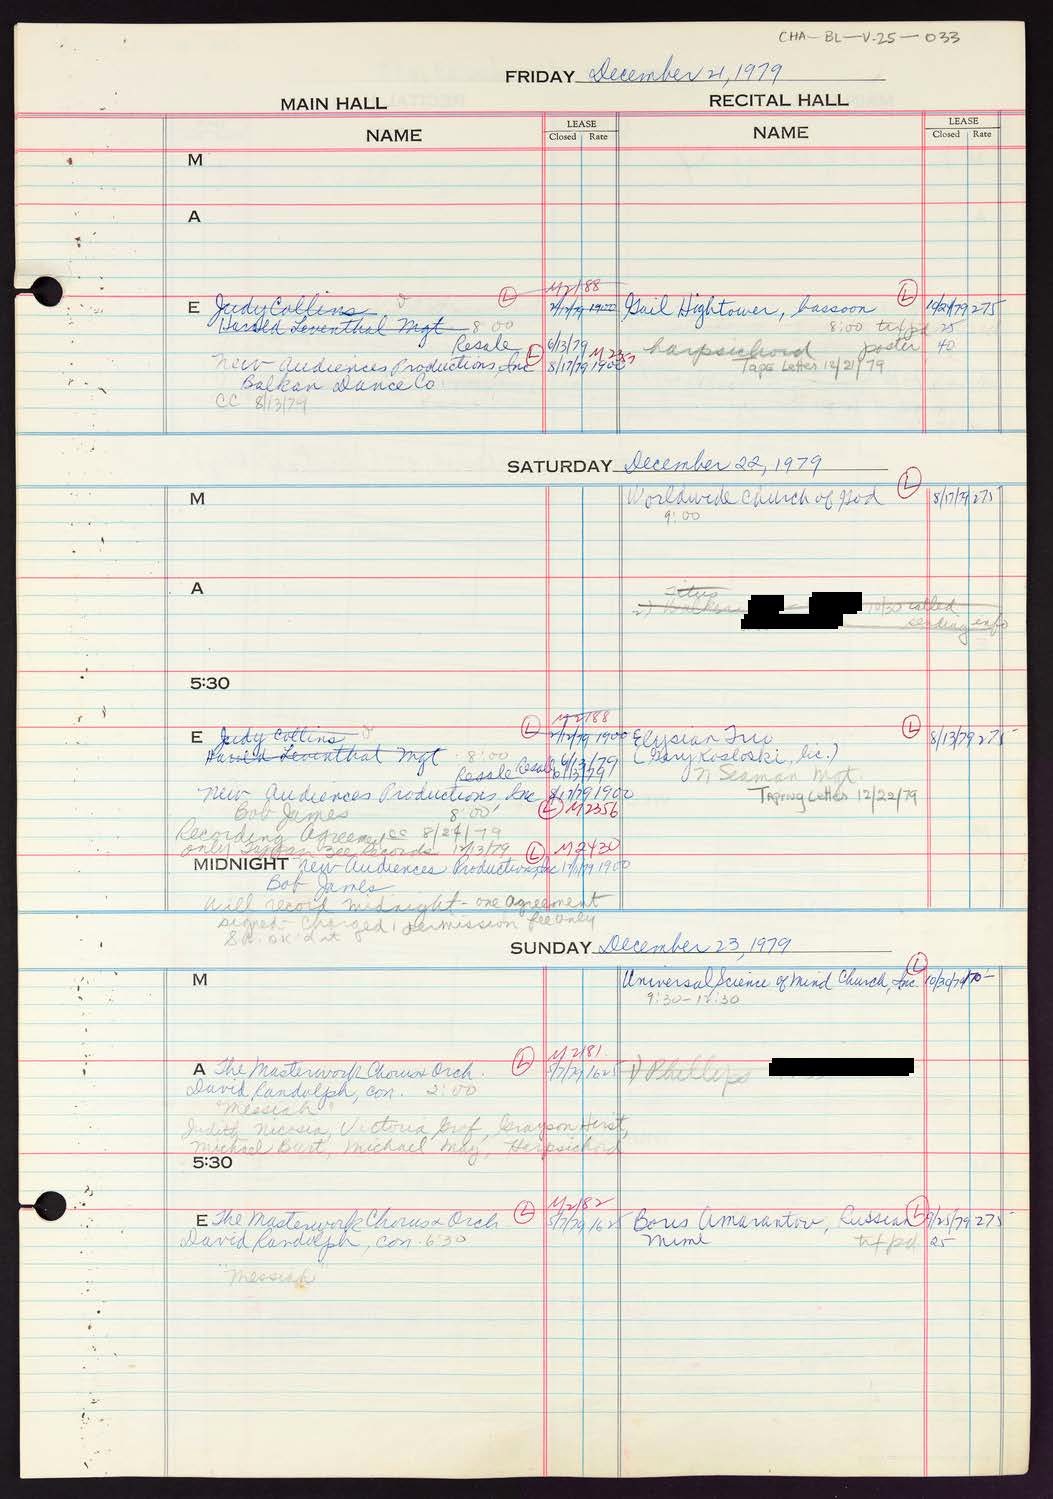 CHA-BL-V-25-033
FRIDAY December 21, 1979
MAIN HALL
RECITAL HALL
NAME
LEASE
Closed Rate
NAME
LEASE
Closed Rate
M
A
M2188
E Judy Collins
L
1900
Gail Hightower, bassoon
L
275
Harold Leventhal Mgt 8 00
8:00 trf pd 25
Resale 6/13/79
harpsichord poster 40
New Audiences Productions, Inc L 8/17/79 1900
Tape Letter 12/21/79
Balkan Dance Co
CC 8/13/79
SATURDAY December 22, 1979
M
Worldwide Church of God
L
8/17/79 275
9:00
A
10/30 called
sending info
5:30
M2188
E Judy Collins
L
1900
Elysian Trio
L
8/13/79 275
Harold Leventhal Mgt 8:00
6/13/79
(Gary Kosloski, lic.)
Resale Resale 6/13/79
N Seaman Mgt.
New Audiences Productions, Inc 8/17/79 1900
Taping Letter 12/22/79
Bob James 8:00
L M2356
Recording Agreement CC 8/24/79
only Records 12/13/79
L M2430
MIDNIGHT New Audiences Productions, Inc 1900
Bob James
will record midnight - one agreement
signed - Charged 1 permission fee only
SUNDAY December 23, 1979
M
Universal Science of Mind Church, Inc.
L
10/30/79
9:30-12:30
M2181
A The Masterwork Chorus & Orch.
L
5/7/79 1625
1) Phillips
David Randolph, con. 2:00
"Messiah"
Judith Nicosia, Victoria Grof, Grayson Hirst,
Michael Burt, Michael May, Harpsichord
5:30
M2182
E The Masterwork Chorus & Orch
L
5/7/79 1625
Boris Amarantov, Russian
L
9/25/79 275
David Randolph, con. 6:30
Mime
trf pd. 25
"Messiah"